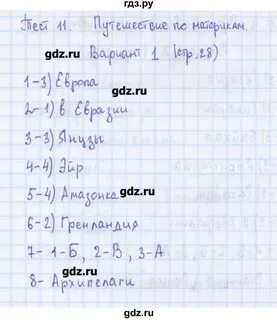 гдз.ру
Тест 11. Путешествие по материкам.
Вариант 1 (стр.28)
1-3) Европа
2-1) в Евразии
3-3) Янцзы
4-4) Эйр
5-4) Амазонка
6-2) Гренландия
7- 1-Б, 2-В, 3-А
8- Архипелаги